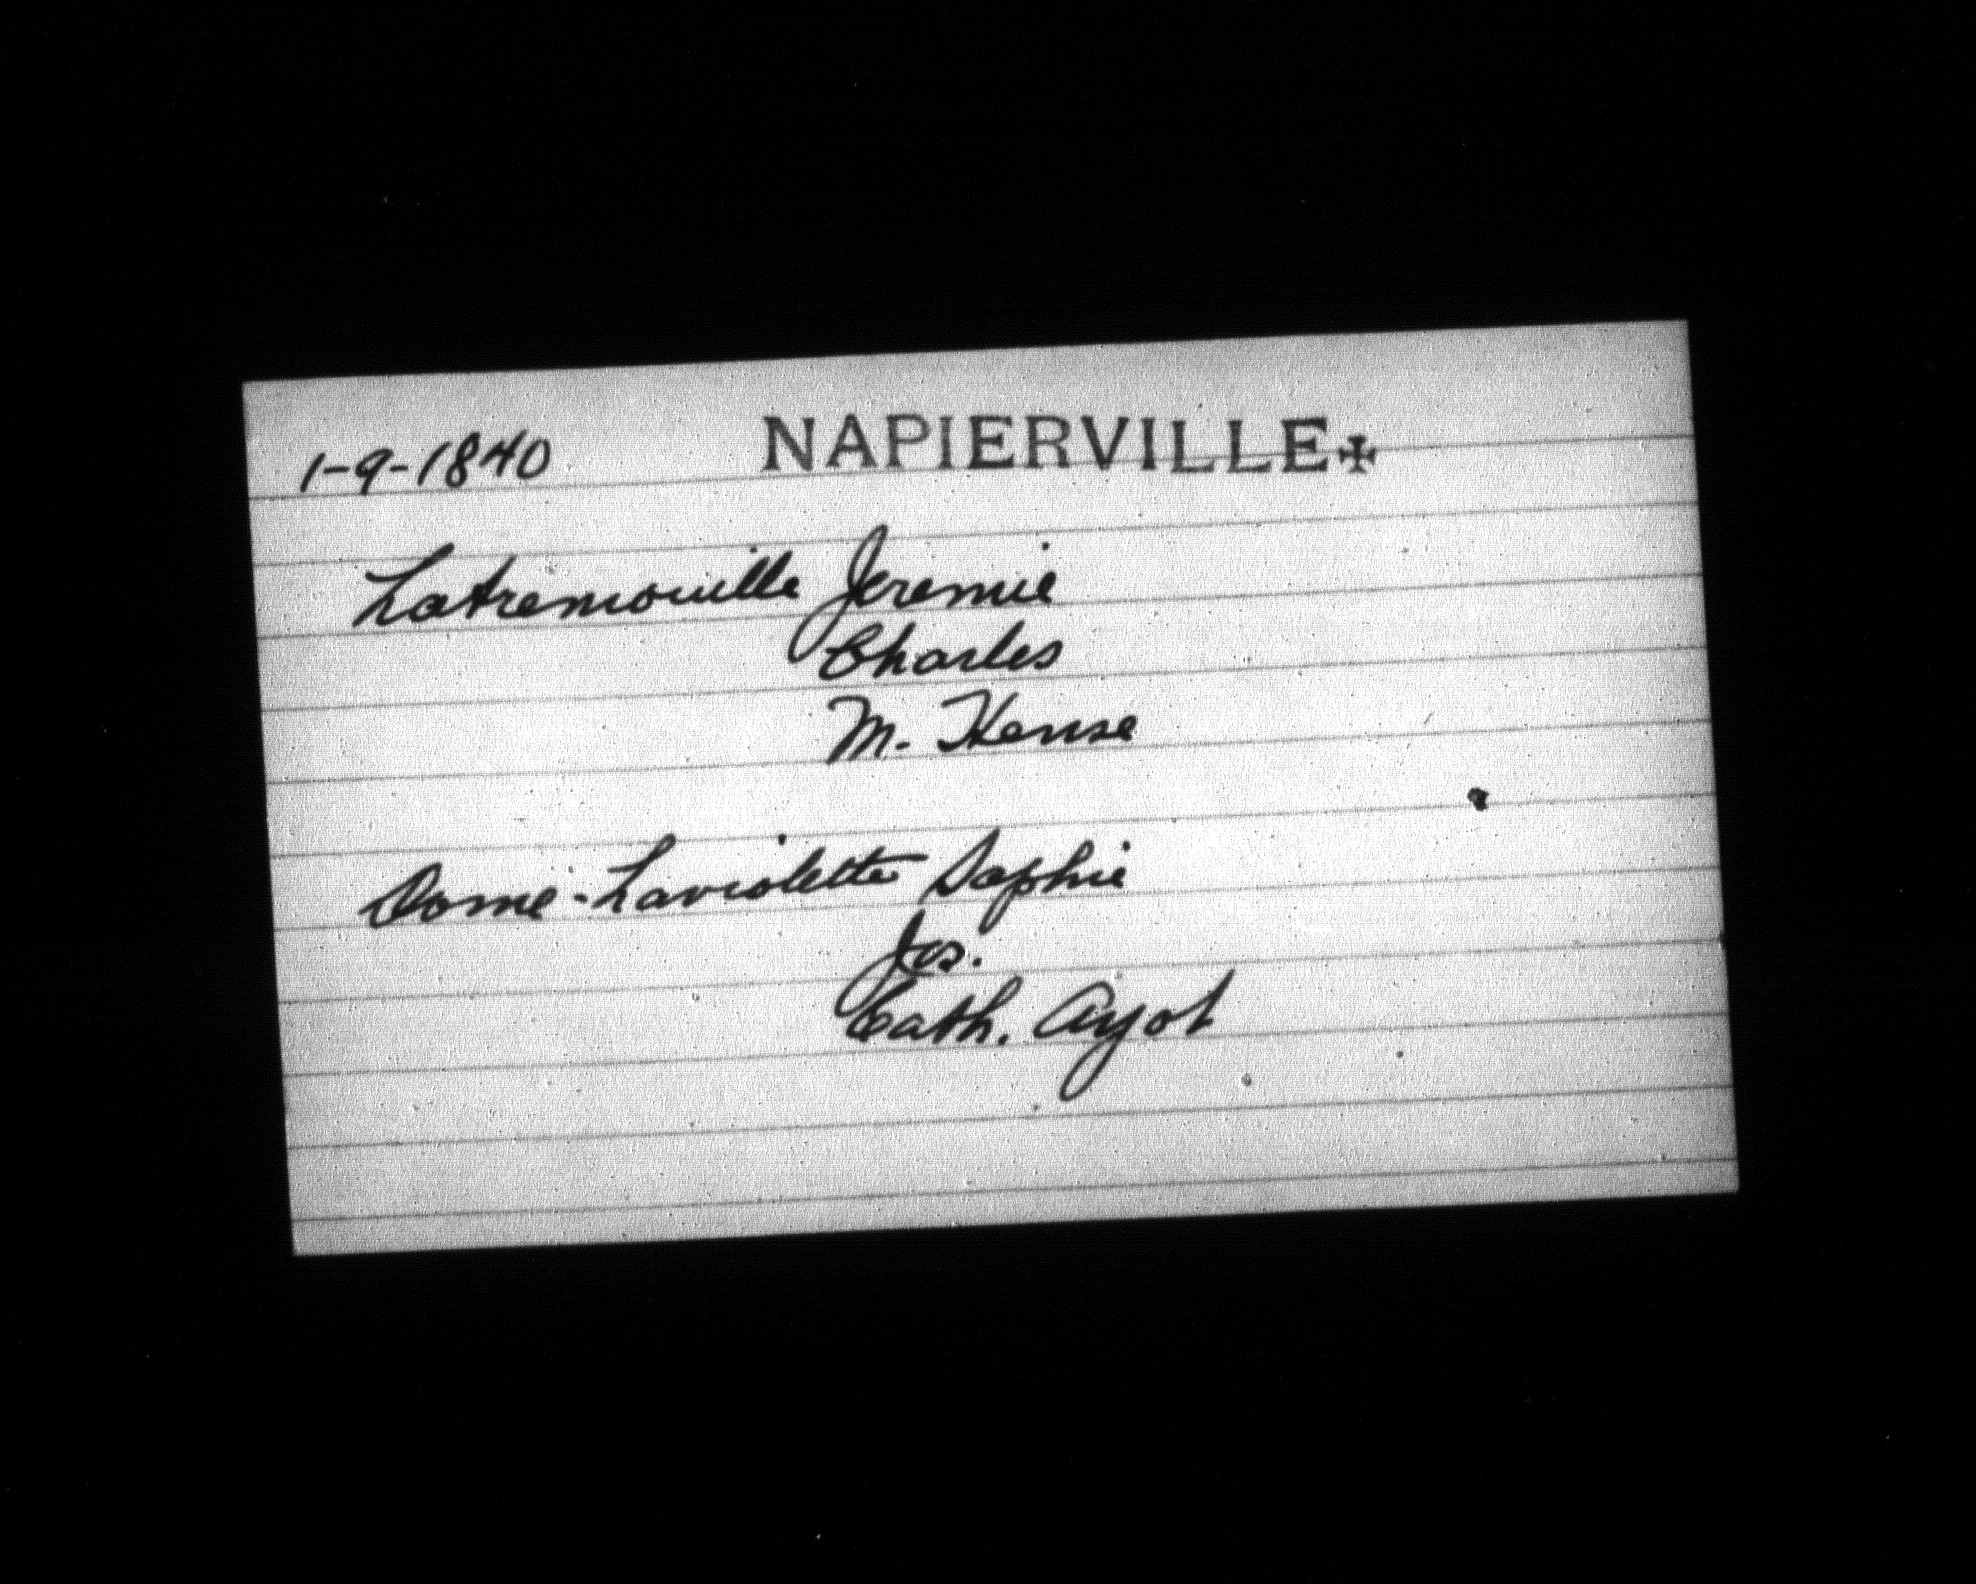 1-9-1840 NAPIERVILLE✠
Latremouille Jeremie
Charles
M. Hense
Dome-Laviolette Sophie
Jos.
Cath. Ayot